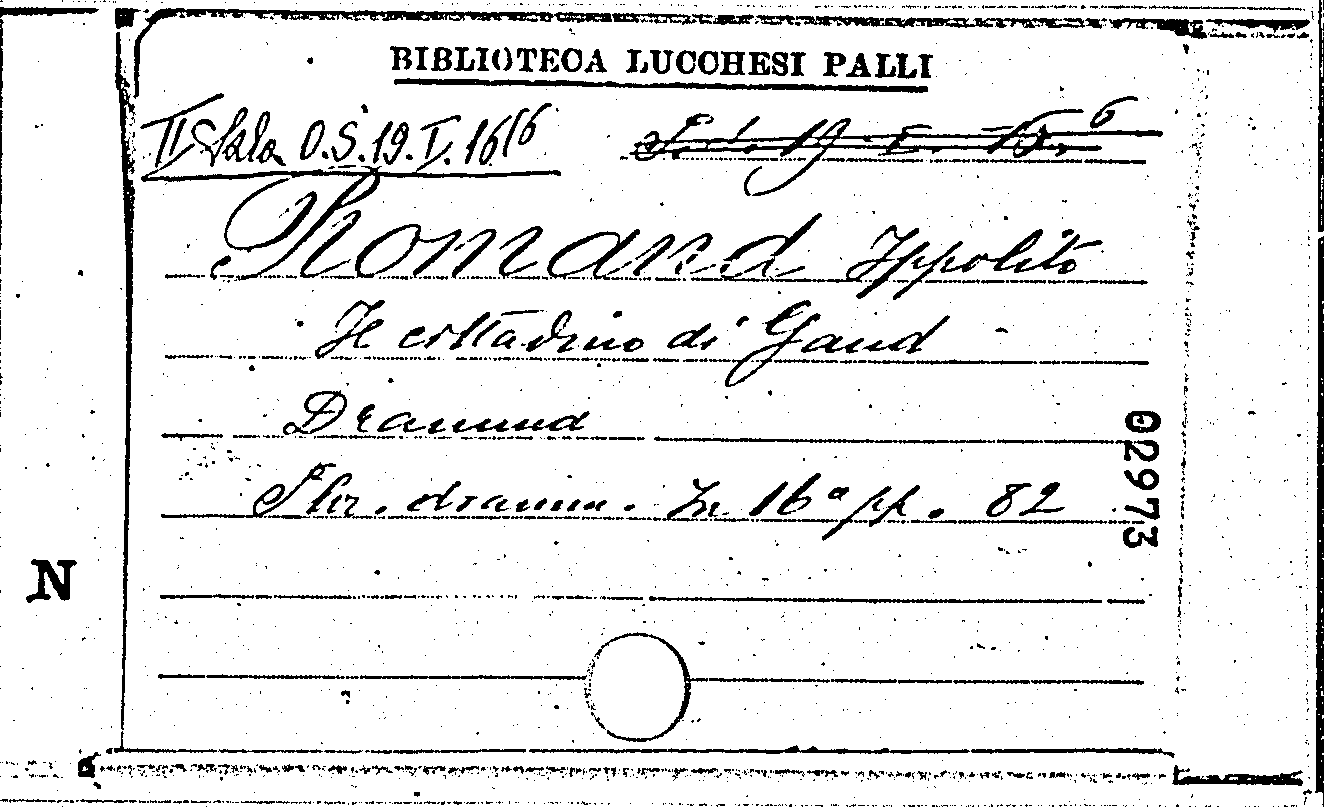 BIBLIOTECA LUCCHESI PALLI
II Sala O.S.19.I.16/6
Romand Ippolito
Il cittadino di Gand
Dramma
Flor. dramm. In 16° pp. 82
02973
N